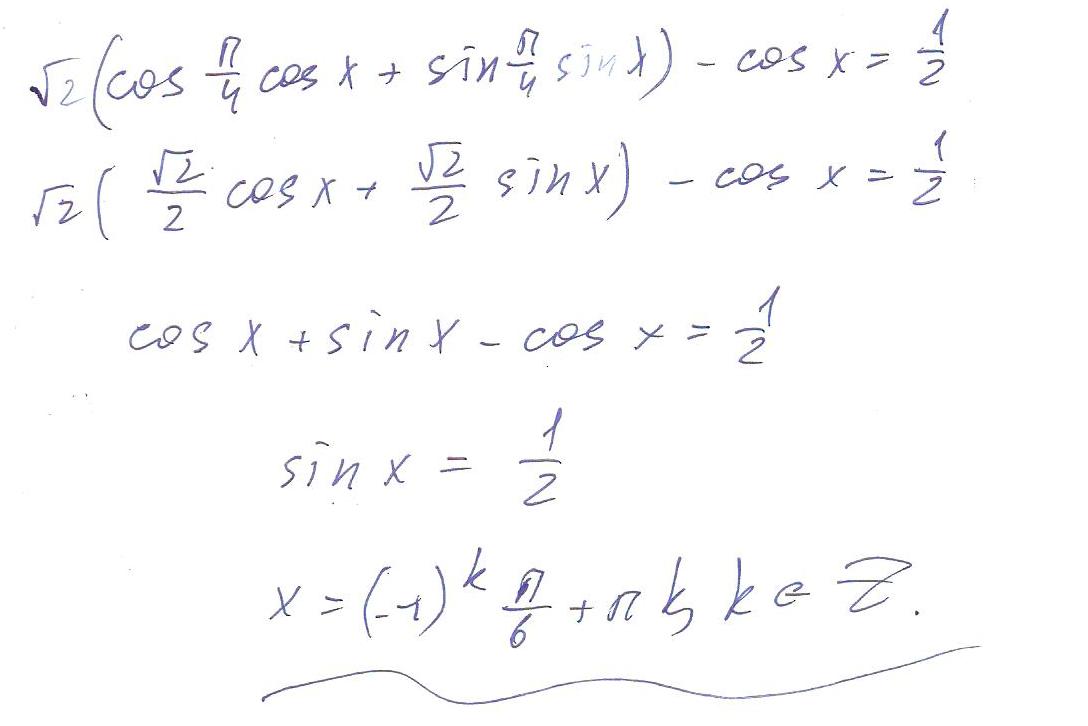 √2(cos π/4 cos x + sin π/4 sin x) - cos x = 1/2
√2(√2/2 cos x + √2/2 sin x) - cos x = 1/2
cos x + sin x - cos x = 1/2
sin x = 1/2
x = (-1)^k π/6 + πk, k ∈ Z.